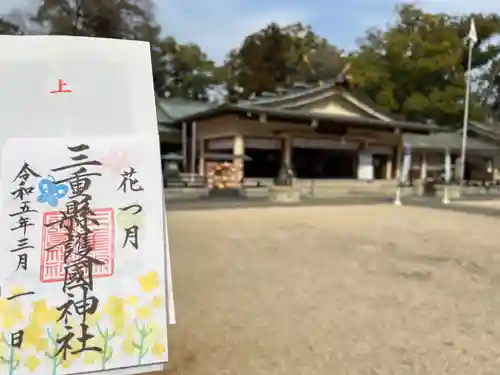 上
花つ月
三重縣護國神社
令和五年三月一日